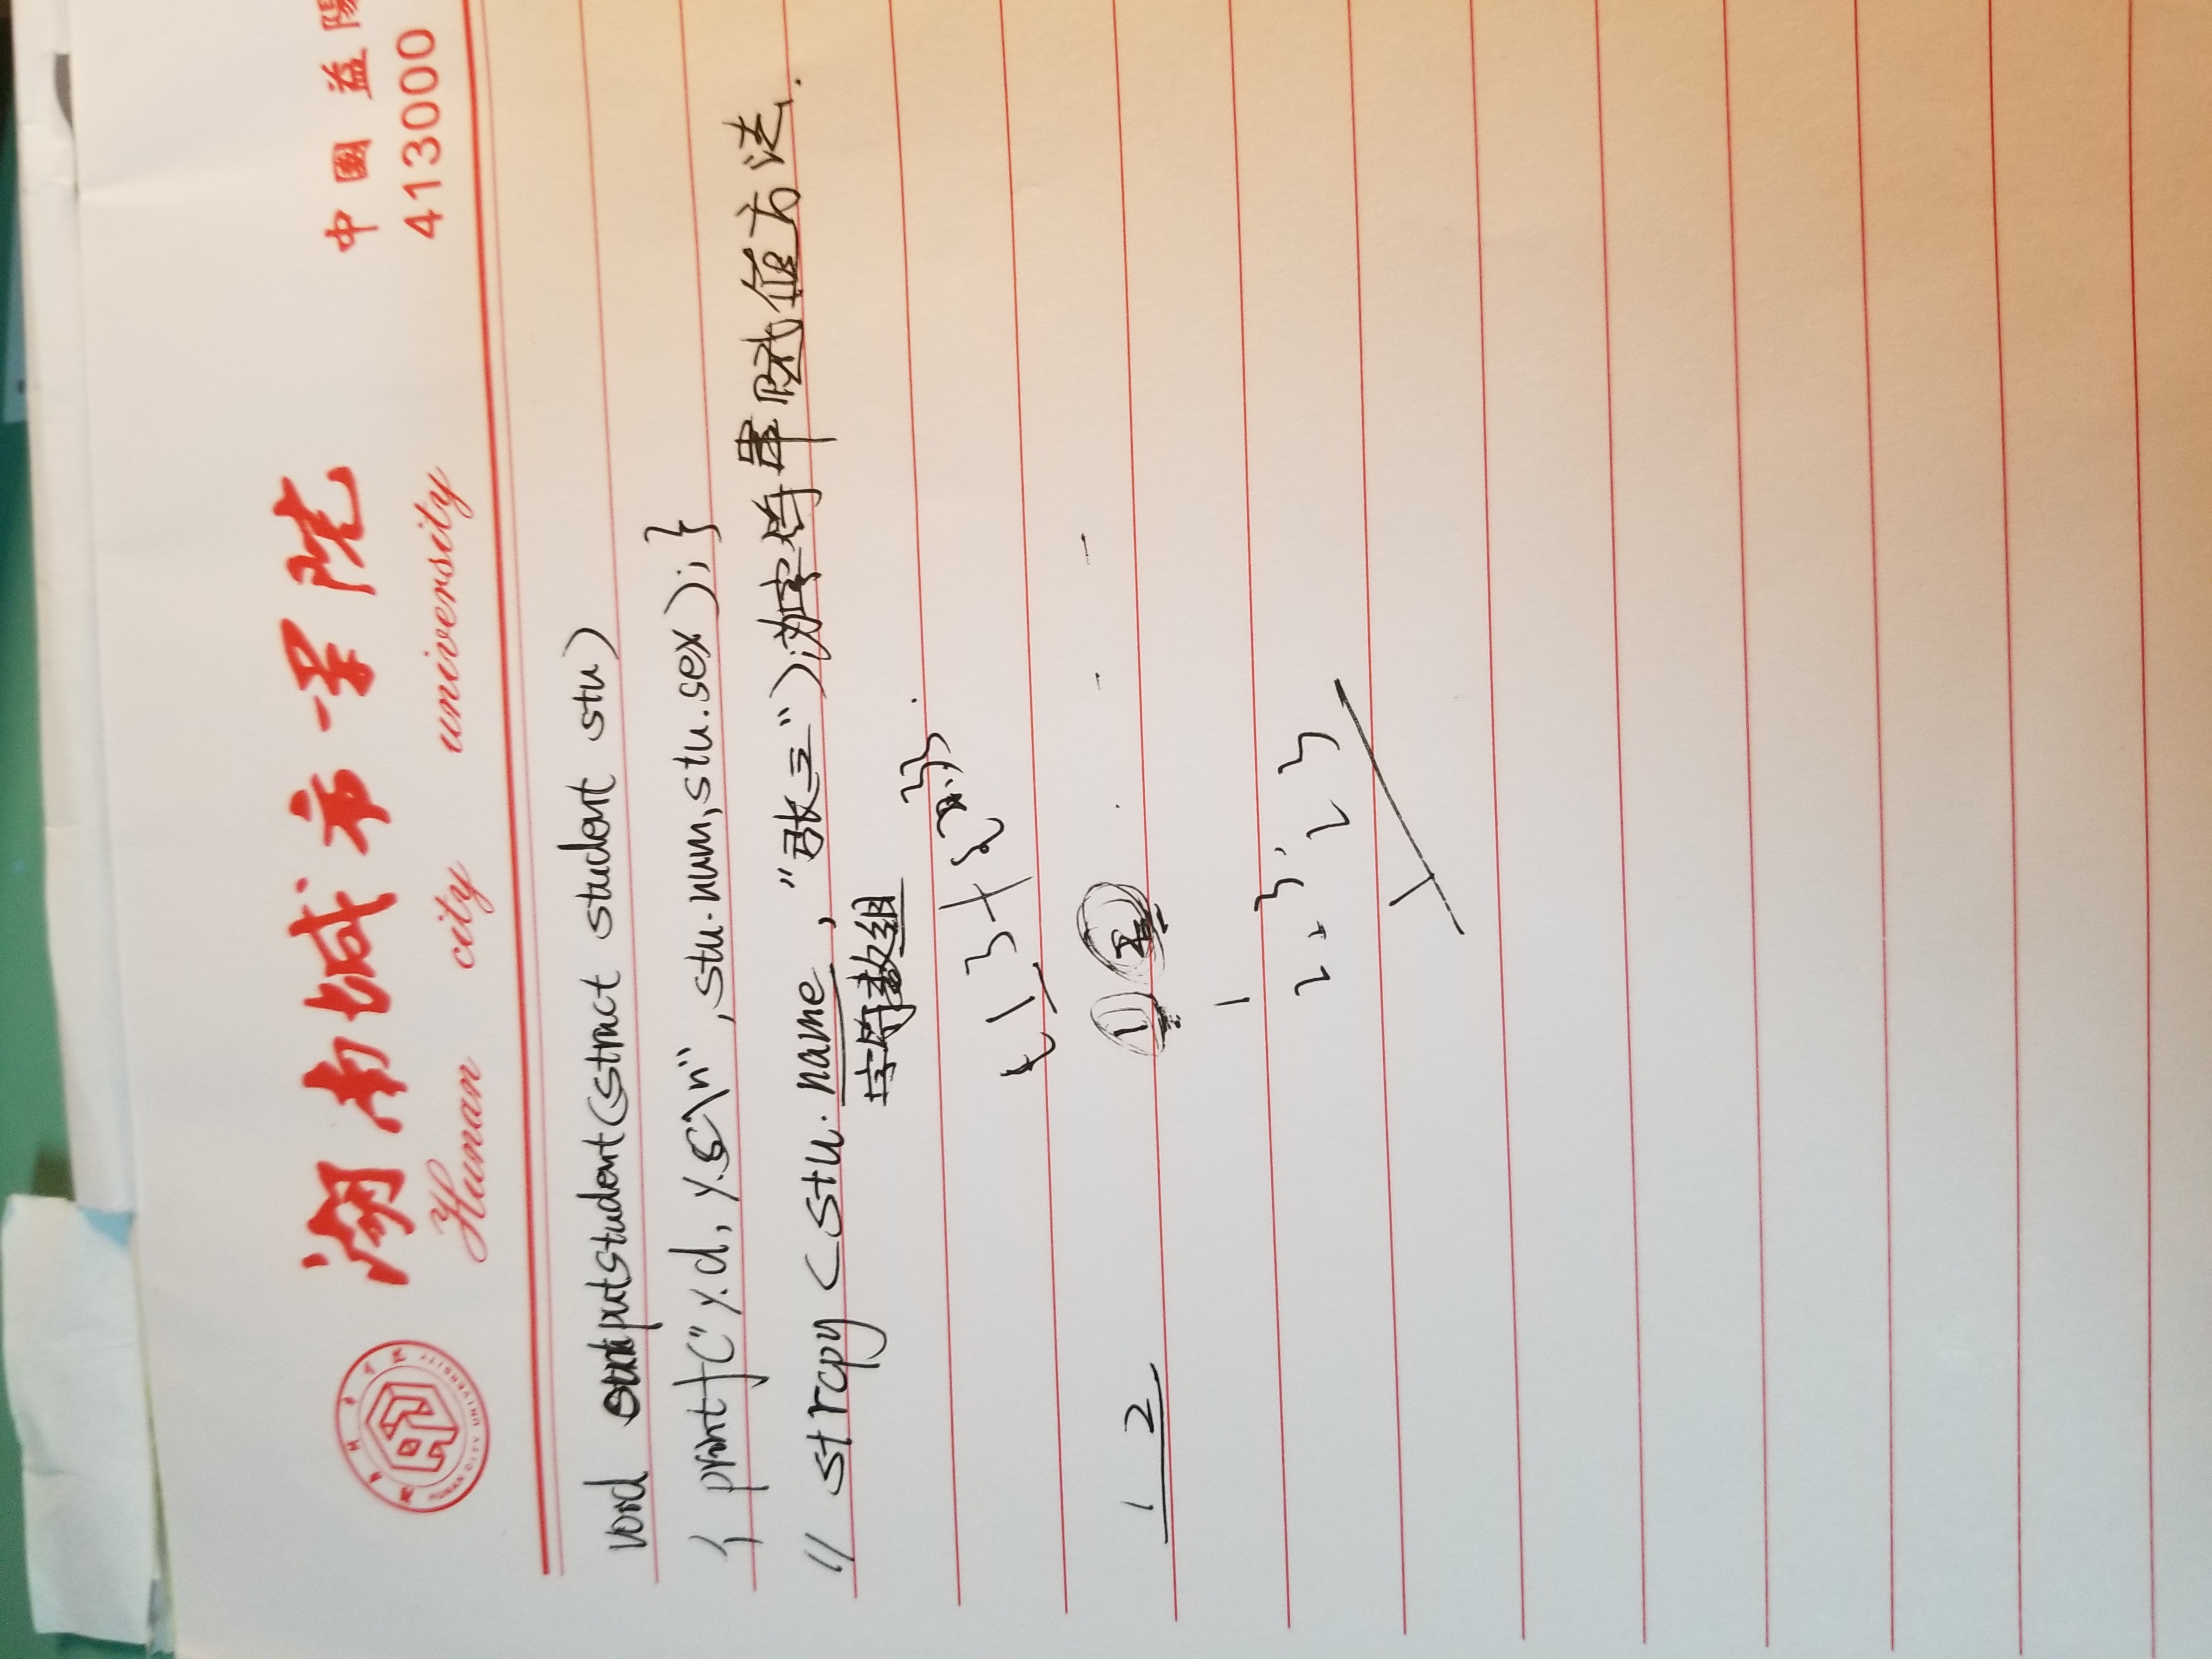 湖南城市学院
Hunan city university
中國 益陽
413000
HUNAN CITY UNIVERSITY
void outputstudent(struct student stu)
{ printf("%d, %s\n", stu.num, stu.sex); }
// strcpy (stu.name, "张三"); 为字符串赋值方法.
字符数组
1 2
1 2
1
2, 3,
2 3
1